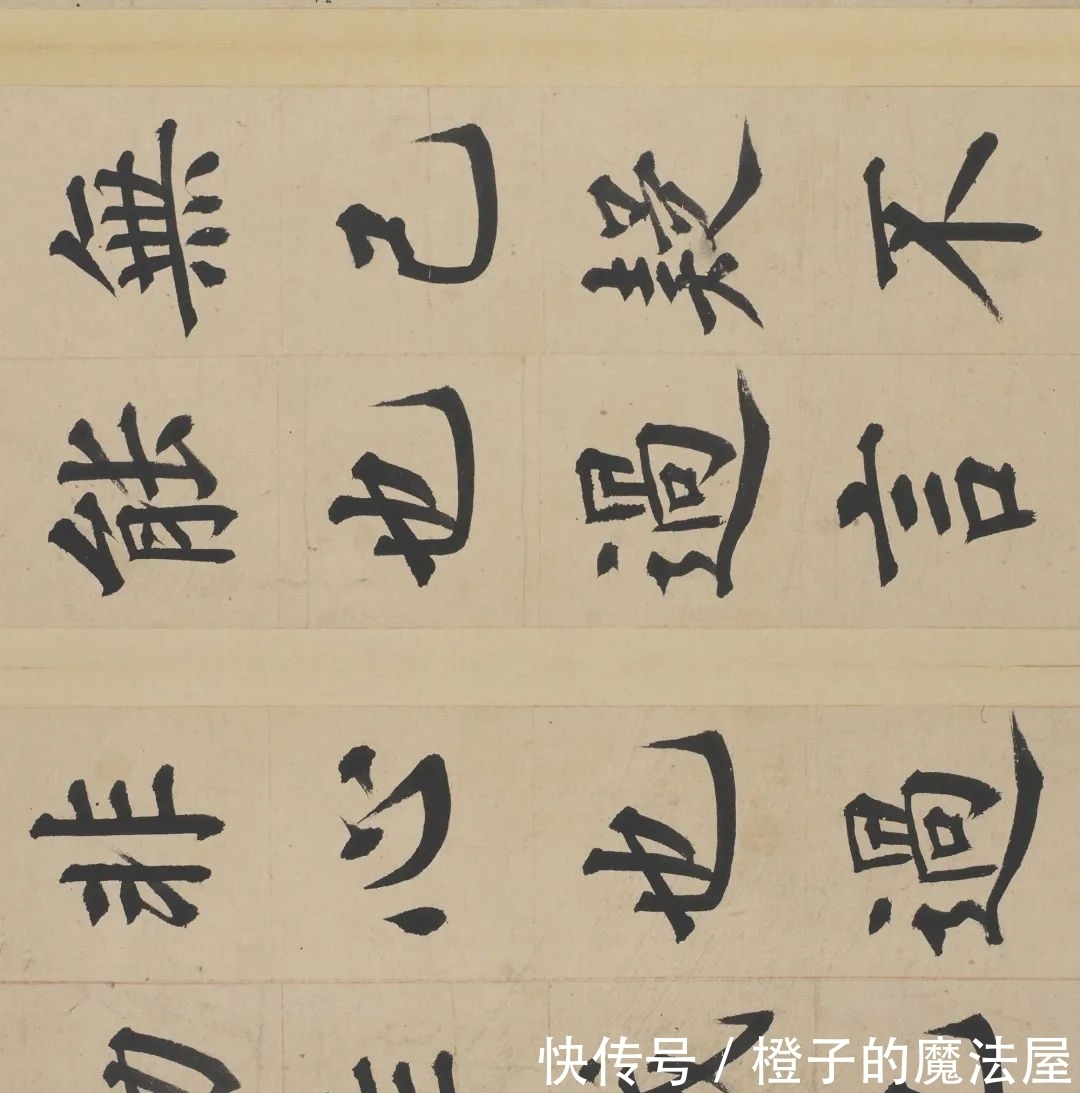 無己疑不
能也過言
非心也過
快传号 / 橙子的魔法屋